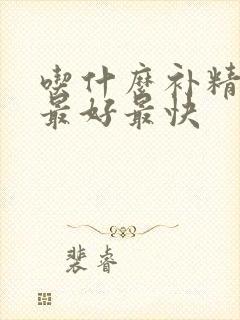 喫什麼补精
最好最快
裴睿